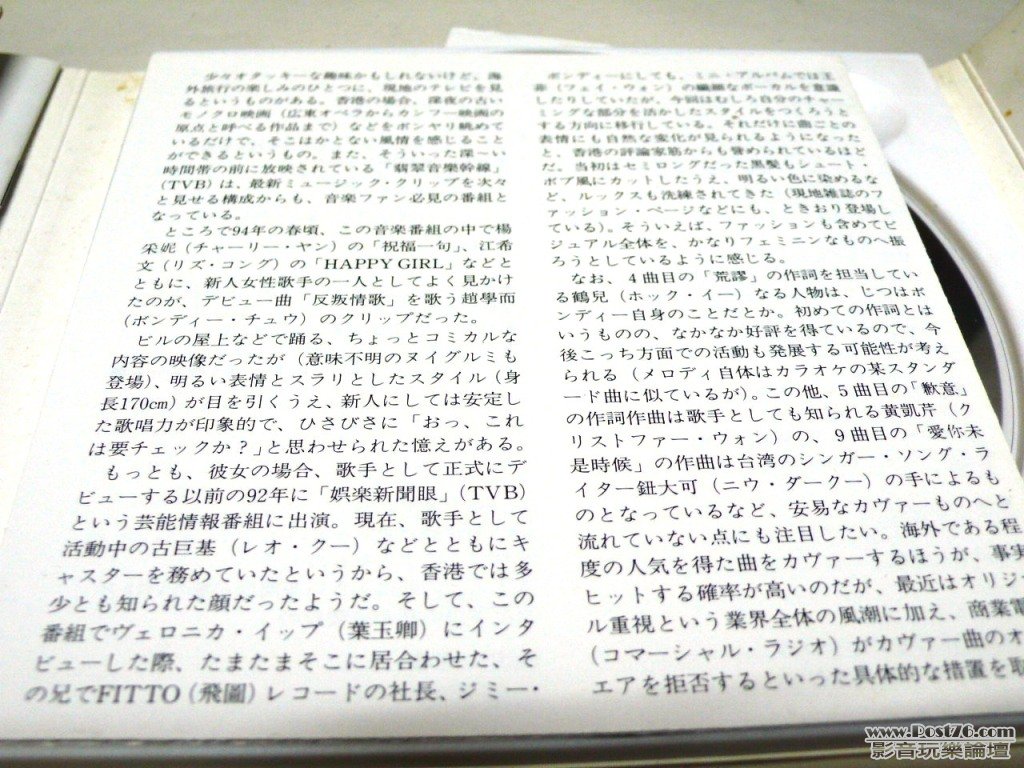 少々オタッキーな趣味かもしれないけど、海
外旅行の楽しみのひとつに、現地のテレビを見
るというものがある。香港の場合、深夜の古い
モノクロ映画（広東オペラからカンフー映画の
原点と呼べる作品まで）などをボンヤリ眺めて
いるだけで、そこはかとない風情を感じること
ができるというもの。また、そういった深〜い
時間帯の前に放映されている「翡翠音樂幹線」
（TVB）は、最新ミュージック・クリップを次々
と見せる構成からも、音楽ファン必見の番組と
なっている。
ところで94年の春頃、この音楽番組の中で楊
采妮（チャーリー・ヤン）の「祝福一句」、江希
文（リズ・コング）の「HAPPY GIRL」などと
ともに、新人女性歌手の一人としてよく見かけ
たのが、デビュー曲「反叛情歌」を歌う趙學而
（ボンディー・チュウ）のクリップだった。
ビルの屋上などで踊る、ちょっとコミカルな
内容の映像だったが（意味不明のヌイグルミも
登場）、明るい表情とスラリとしたスタイル（身
長170cm）が目を引くうえ、新人にしては安定し
た歌唱力が印象的で、ひさびさに「おっ、これ
は要チェックか？」と思わせられた憶えがある。
もっとも、彼女の場合、歌手として正式にデ
ビューする以前の92年に「娯楽新聞眼」（TVB）
という芸能情報番組に出演。現在、歌手として
活動中の古巨基（レオ・クー）などとともにキ
ャスターを務めていたというから、香港では多
少とも知られた顔だったようだ。そして、この
番組でヴェロニカ・イップ（葉玉卿）にインタ
ビューした際、たまたまそこに居合わせた、そ
の兄でFITTO（飛圖）レコードの社長、ジミー・
ボンディーにしても、ミニ・アルバムでは王
菲（フェイ・ウォン）の繊細なボーカルを意識
したりしていたが、今回はむしろ自分のチャー
ミングな部分を活かしたスタイルをつくろうと
する方向に移行している。それだけに曲ごとの
表情にも自然な変化が見られるようになった
と、香港の評論家筋からも誉められているほど
だ。当初はセミ・ロングだった黒髪もショート・
ボブ風にカットしたうえ、明るい色に染めるな
ど、ルックスも洗練されてきた（現地雑誌のフ
ァッション・ページなどにも、ときおり登場し
ている）。そういえば、ファッションも含めてビ
ジュアル全体を、かなりフェミニンなものへ振
ろうとしているように感じる。
なお、4曲目の「荒謬」の作詞を担当してい
る鶴兒（ホック・イー）なる人物は、じつはボ
ンディー自身のことだとか。初めての作詞とは
いうものの、なかなか好評を得ているので、今
後こっち方面での活動も発展する可能性が考え
られる（メロディ自体はカラオケの某スタンダ
ード曲に似ているが）。この他、5曲目の「歉意」
の作詞作曲は歌手としても知られる黄凱芹（ク
リストファー・ウォン）の、9曲目の「愛你未
是時候」の作曲は台湾のシンガー・ソング・ラ
イター鈕大可（ニウ・ダークー）の手によるも
のとなっているなど、安易なカヴァーものへと
流れていない点にも注目したい。海外である程
度の人気を得た曲をカヴァーするほうが、事実
ヒットする確率が高いのだが、最近はオリジ
ル重視という業界全体の風潮に加え、商業電
（コマーシャル・ラジオ）がカヴァー曲のオ
エアを拒否するといった具体的な措置を取
www.Post76.com
影音玩樂論壇